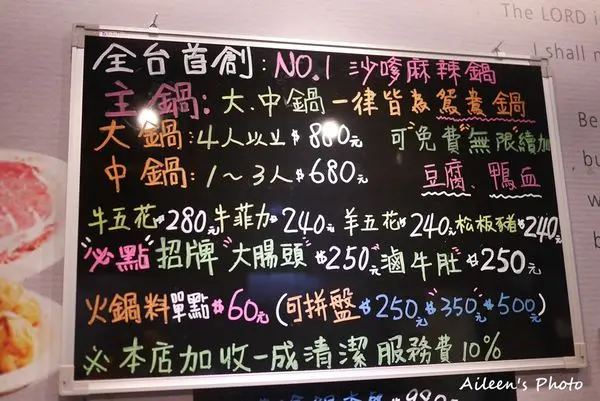 The LORD i
I shall n
Be
bu
w
b
全台首創:NO.1 沙嗲麻辣鍋
主鍋:大.中鍋一律皆為鴛鴦鍋
大鍋:4人以上$880元 可"免費"無限續加
中鍋:1~3人$680元 豆腐、鴨血
牛五花$280元牛菲力$240元羊五花$240元松板豬$240元
"必點"招牌"大腸頭"$250元滷牛肚$250元
火鍋料單點$60元(可拼盤$250元$350元$500元)
※本店加收一成清潔服務費10%
Aileen's Photo